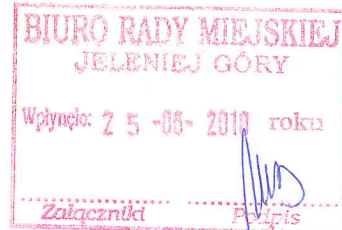 BIURO RADY MIEJSKIEJ
JELENIEJ GÓRY
Wpłynęło: 2 5 -06- 2010 roku
Załączniki Podpis